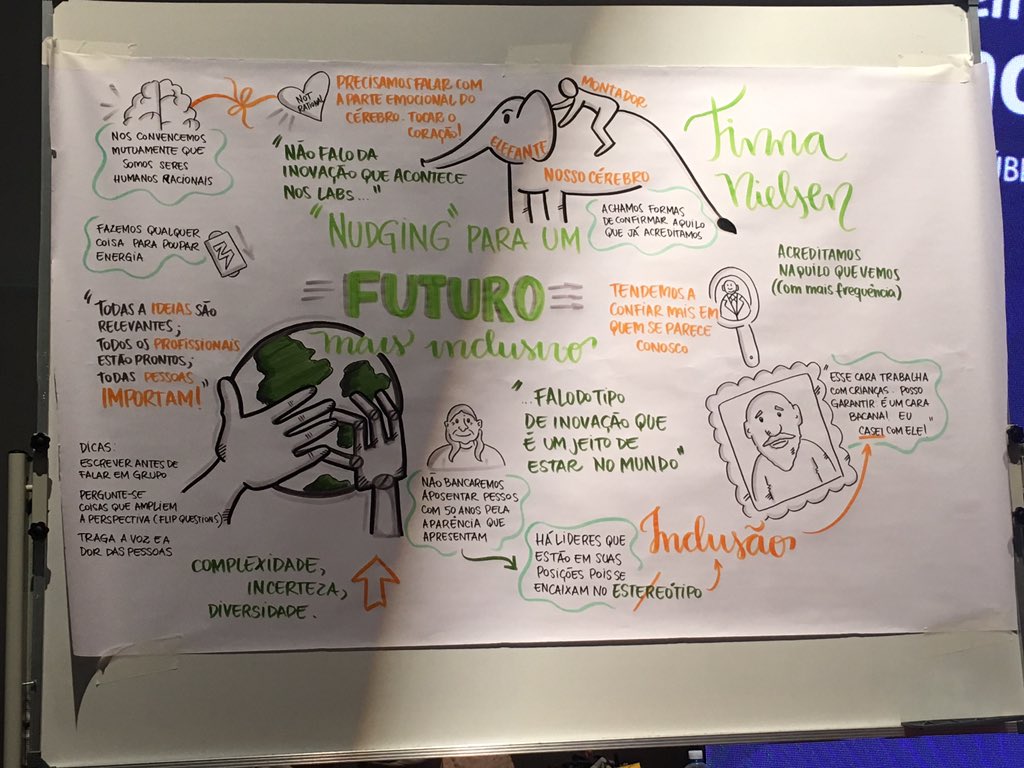 NOS CONVENCEMOS
MUTUAMENTE QUE
SOMOS SERES
HUMANOS RACIONAIS
NOT
RATIONAL
PRECISAMOS FALAR COM
A PARTE EMOCIONAL DO
CÉREBRO. TOCAR O
CORAÇÃO!
MONTADOR
ELEFANTE
NOSSO CÉREBRO
Tinna
Nielsen
"NÃO FALO DA
INOVAÇÃO QUE ACONTECE
NOS LABS..."
ACHAMOS FORMAS
DE CONFIRMAR AQUILO
QUE JÁ ACREDITAMOS
FAZEMOS QUALQUER
COISA PARA POUPAR
ENERGIA
"NUDGING" PARA UM
FUTURO
mais inclusivo
ACREDITAMOS
NAQUILO QUE VEMOS
(com mais frequência)
TENDEMOS A
CONFIAR MAIS EM
QUEM SE PARECE
CONOSCO
"TODAS A IDEIAS SÃO
RELEVANTES;
TODOS OS PROFISSIONAIS
ESTÃO PRONTOS;
TODAS PESSOAS
IMPORTAM!"
"ESSE CARA TRABALHA
COM CRIANÇAS. POSSO
GARANTIR É UM CARA
BACANA! EU
CASEI COM ELE!"
"...FALO DO TIPO
DE INOVAÇÃO QUE
É UM JEITO DE
ESTAR NO MUNDO"
DICAS:
ESCREVER ANTES DE
FALAR EM GRUPO
PERGUNTE-SE
COISAS QUE AMPLIEM
A PERSPECTIVA (FLIP QUESTIONS)
TRAGA A VOZ E A
DOR DAS PESSOAS
NÃO BANCAREMOS
APOSENTAR PESSOS
COM 50 ANOS PELA
APARÊNCIA QUE
APRESENTAM
HÁ LIDERES QUE
ESTÃO EM SUAS
POSIÇÕES POIS SE
ENCAIXAM NO ESTEREÓTIPO
Inclusão
COMPLEXIDADE,
INCERTEZA,
DIVERSIDADE.